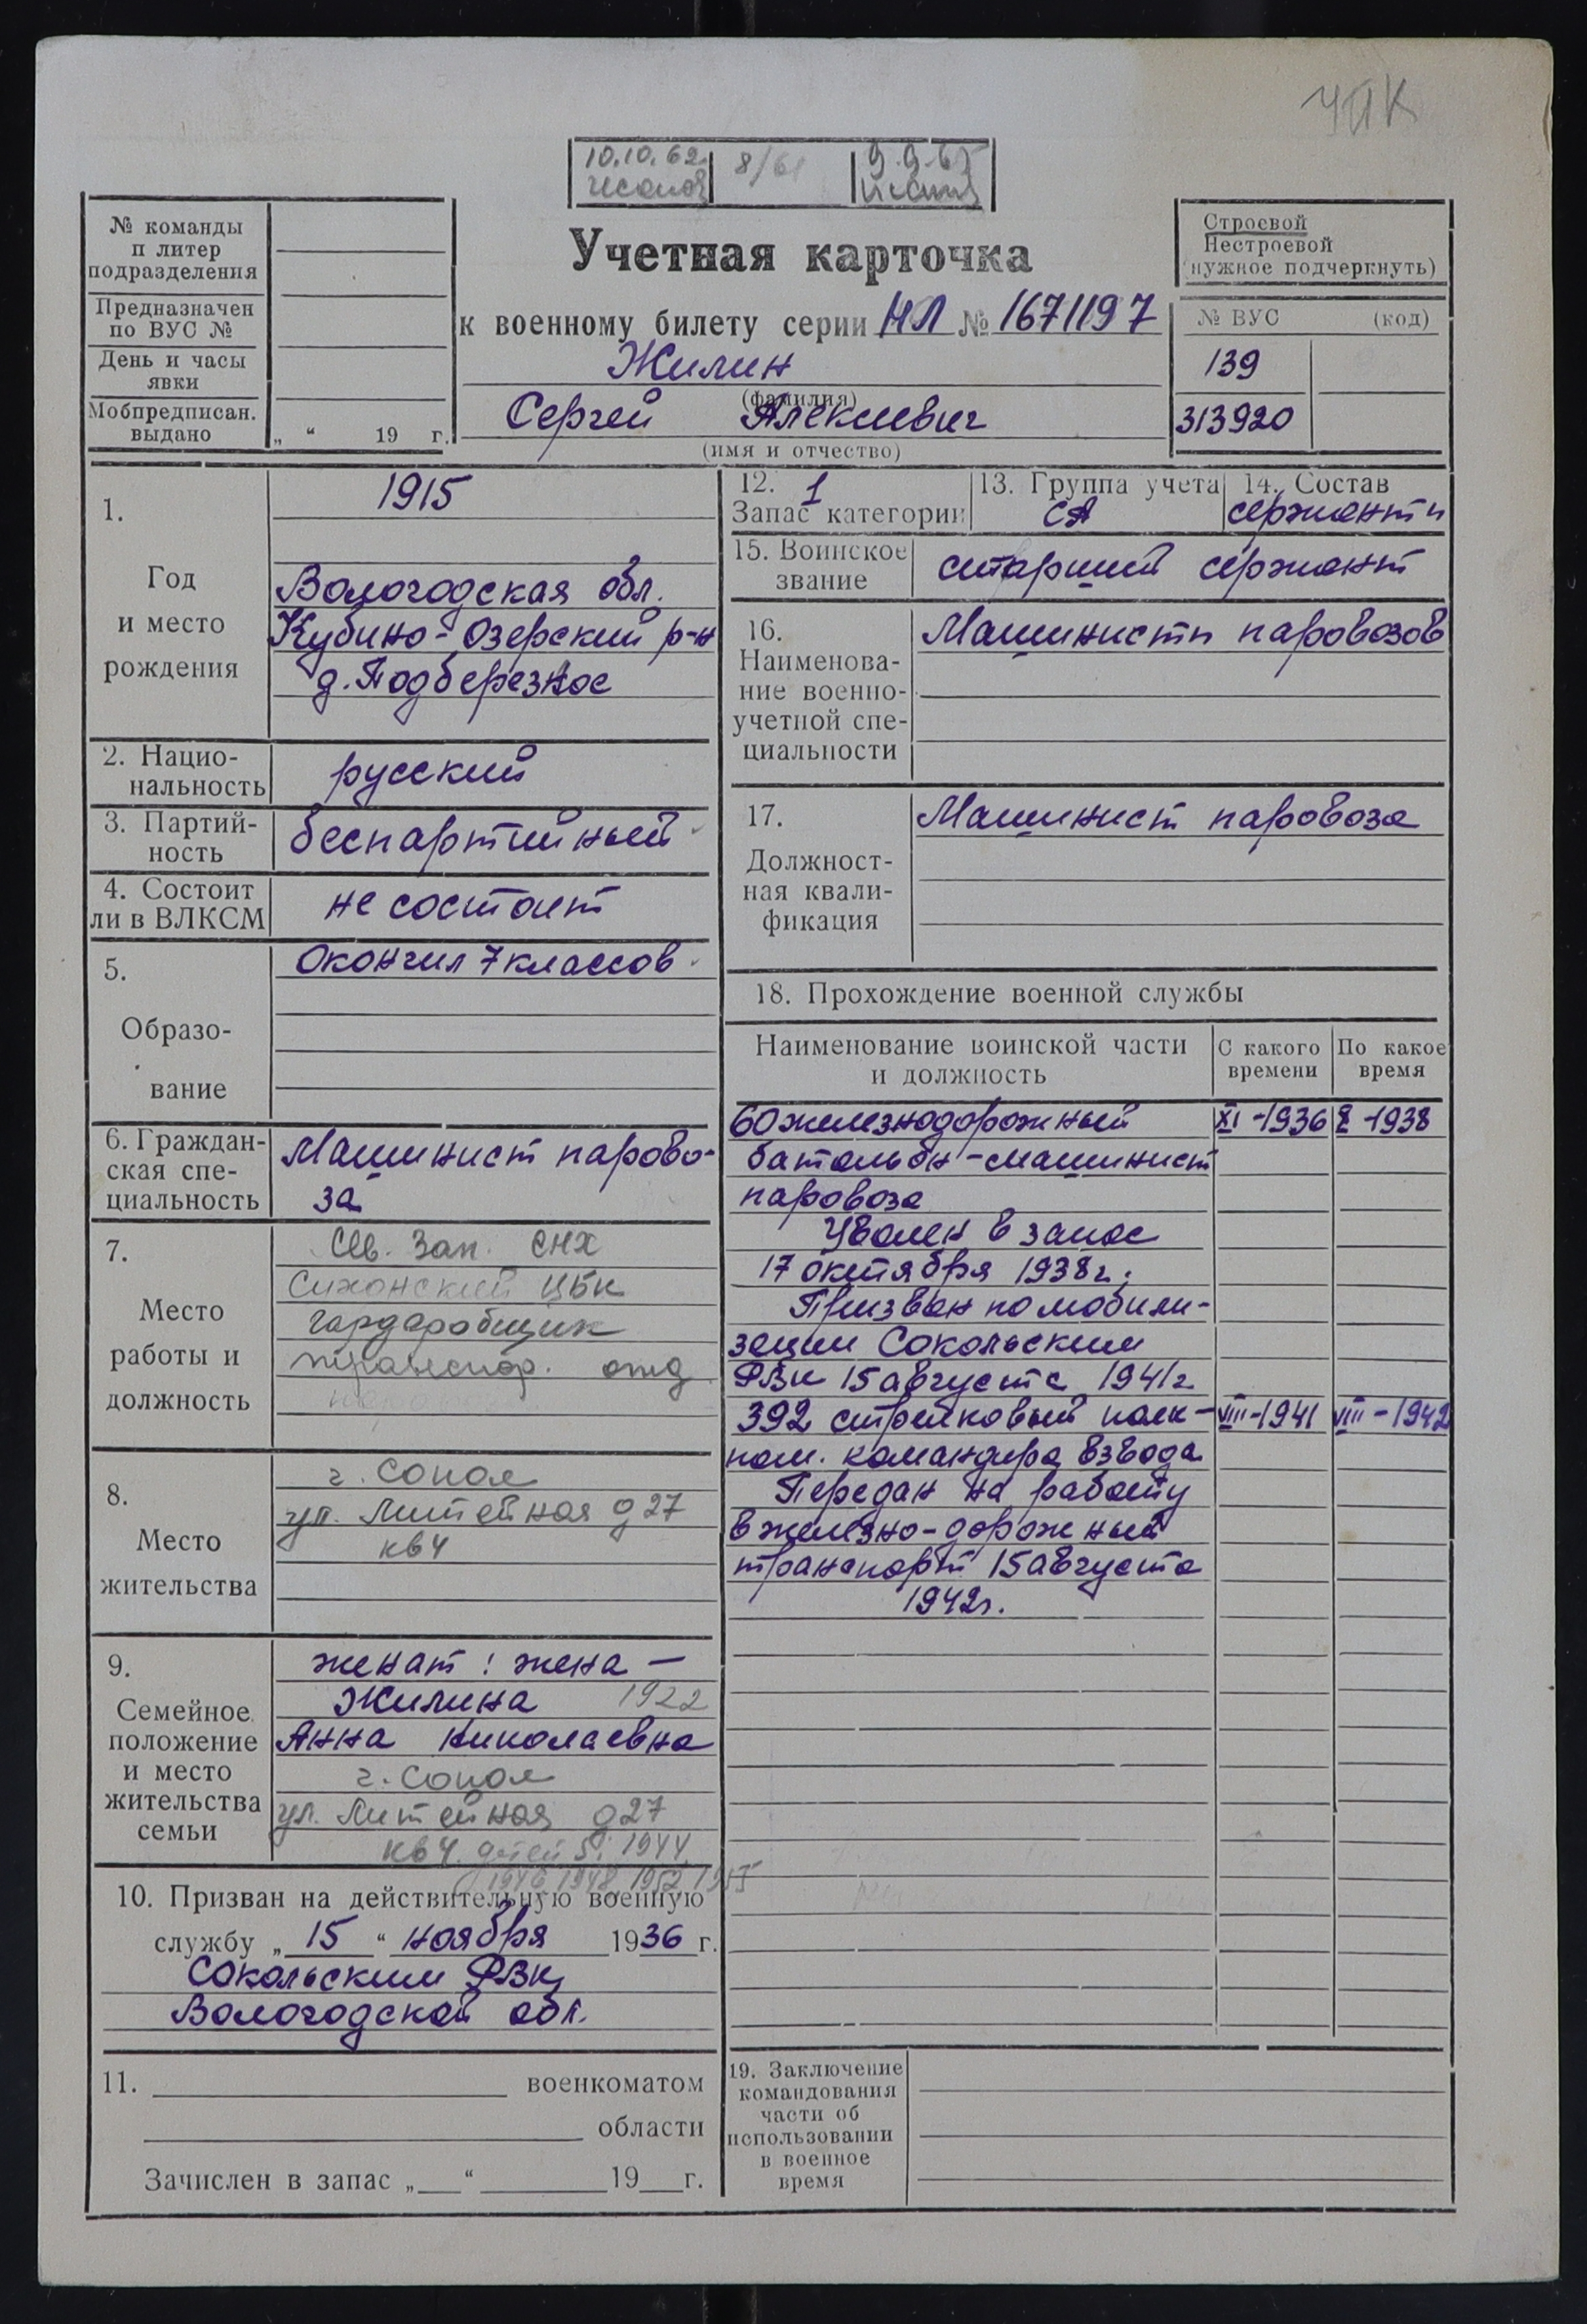 ЧПК
10.10.62
8/61
9.9.65
№ команды
п литер
подразделения
Предназначен
по ВУС №
День и часы
явки
Мобпредписан.
выдано
„ “ 19 г.
Учетная карточка
к военному билету серии НЛ № 1671197
Жилин
(фамилия)
Сергей Алексеевич
(имя и отчество)
Строевой
Нестроевой
(нужное подчеркнуть)
№ ВУС (код)
139
313920
1.
Год
и место
рождения
1915
Вологодская обл.
Кубино-Озерский р-н
д. Подберезное
2. Нацио-
нальность
русский
3. Партий-
ность
беспартийный
4. Состоит
ли в ВЛКСМ
не состоит
5.
Образо-
вание
Окончил 7 классов
6. Граждан-
ская спе-
циальность
Машинист парово-
за
7.
Место
работы и
должность
Сев. Зап. СНХ
Сухонский ЦБК
гардеробщик
транспор. отд
8.
Место
жительства
г. Сокол
ул. Литейная д 27
кв 4
9.
Семейное
положение
и место
жительства
семьи
женат: жена —
Жилина 1922
Анна Николаевна
г. Сокол
ул. Литейная д 27
кв 4. детей 5: 1944,
1946, 1948, 1952, 1955
10. Призван на действительную военную
службу „ 15 “ ноября 1936 г.
Сокольским РВК
Вологодской обл.
11. военкоматом
области
Зачислен в запас „ “ 19 г.
12. 1
Запас категории
13. Группа учета
СА
14. Состав
сержанты
15. Воинское
звание
старший сержант
16.
Наименова-
ние военно-
учетной спе-
циальности
Машинисты паровозов
17.
Должност-
ная квали-
фикация
Машинист паровоза
18. Прохождение военной службы
Наименование воинской части
и должность
С какого
времени
По какое
время
60 железнодорожный XI-1936 X-1938
батальон-машинист
паровоза
Уволен в запас
17 октября 1938г.
Призван по мобили-
зации Сокольским
РВК 15 августа 1941г
392 стрелковый полк- VIII-1941 VIII-1942
пом. командира взвода
Передан на работу
в железно-дорожный
транспорт 15 августа
1942г.
19. Заключение
командования
части об
использовании
в военное
время